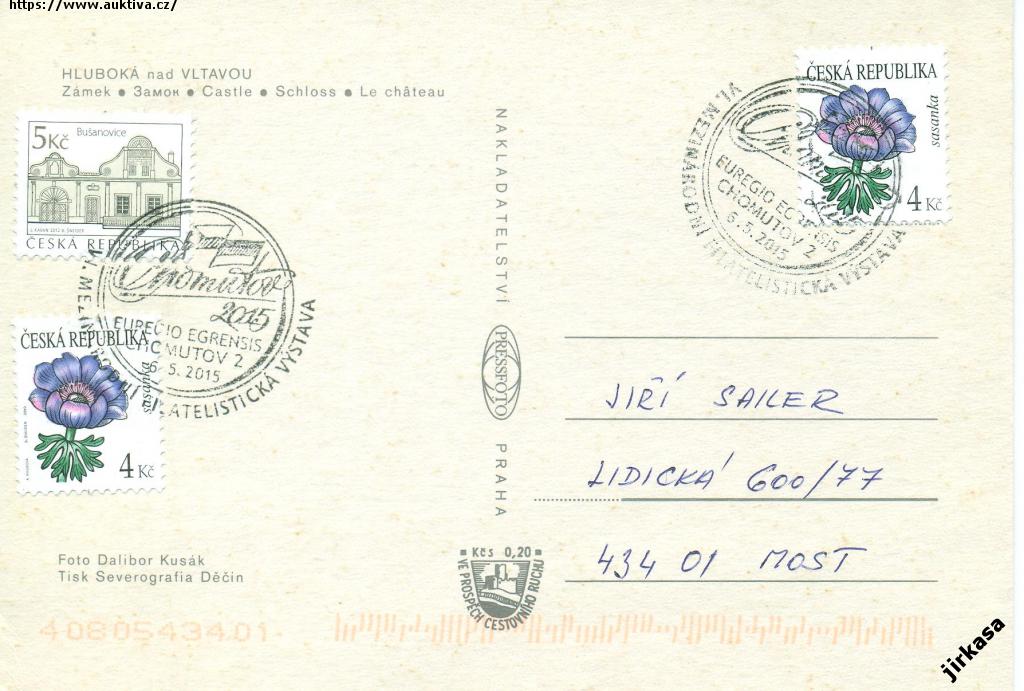 https://www.auktiva.cz/
HLUBOKÁ nad VLTAVOU
Zámek ● Замок ● Castle ● Schloss ● Le château
5Kč
Bušanovice
ČESKÁ REPUBLIKA
Chomutov
2015
EUREGIO EGRENSIS
CHOMUTOV 2
6.5.2015
VI. MEZINÁRODNÍ FILATELISTICKÁ VÝSTAVA
ČESKÁ REPUBLIKA
sasanka
4 Kč
Foto Dalibor Kusák
Tisk Severografia Děčín
4080543401
NAKLADATELSTVÍ
PRESSFOTO
PRAHA
Kčs 0,20
VE PROSPĚCH CESTOVNÍHO RUCHU
ČESKÁ REPUBLIKA
sasanka
4 Kč
Chomutov
2015
EUREGIO EGRENSIS
CHOMUTOV 2
6.5.2015
VI. MEZINÁRODNÍ FILATELISTICKÁ VÝSTAVA
JIŘÍ SAILER
LIDICKÁ 600/77
434 01 MOST
jirkasa